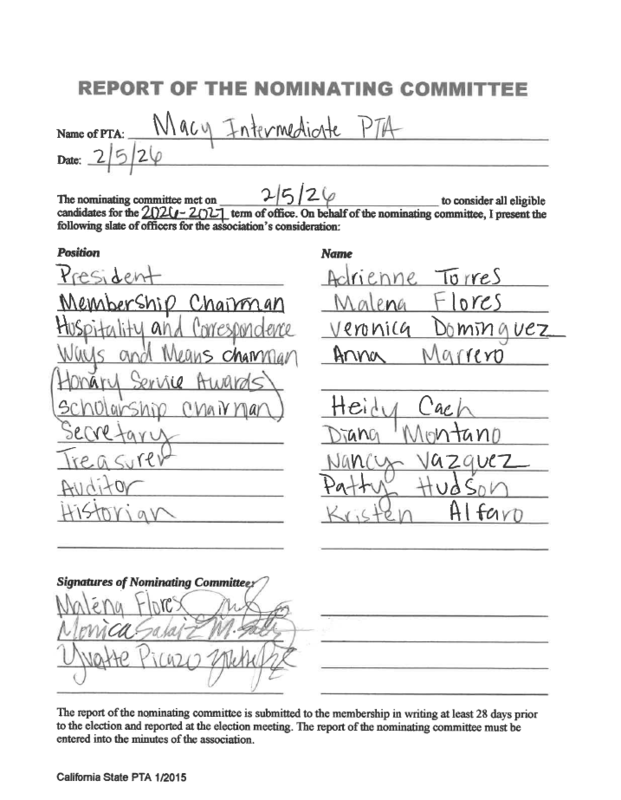 REPORT OF THE NOMINATING COMMITTEE
Name of PTA: Macy Intermediate PTA
Date: 2/5/26
The nominating committee met on 2/5/26 to consider all eligible
candidates for the 2026-2027 term of office. On behalf of the nominating committee, I present the
following slate of officers for the association's consideration:
Position Name
President Adrienne Torres
Membership Chairman Malena Flores
Hospitality and Correspondence Veronica Dominguez
Ways and Means chairman Anna Marrero
(Honary Service Awards)
(Scholarship chairman) Heidy Cach
Secretary Diana Montano
Treasurer Nancy Vazquez
Auditor Patty Hudson
Historian Kristen Alfaro
Signatures of Nominating Committee:
Malena Flores
Monica
Yvette Picazo
The report of the nominating committee is submitted to the membership in writing at least 28 days prior
to the election and reported at the election meeting. The report of the nominating committee must be
entered into the minutes of the association.
California State PTA 1/2015